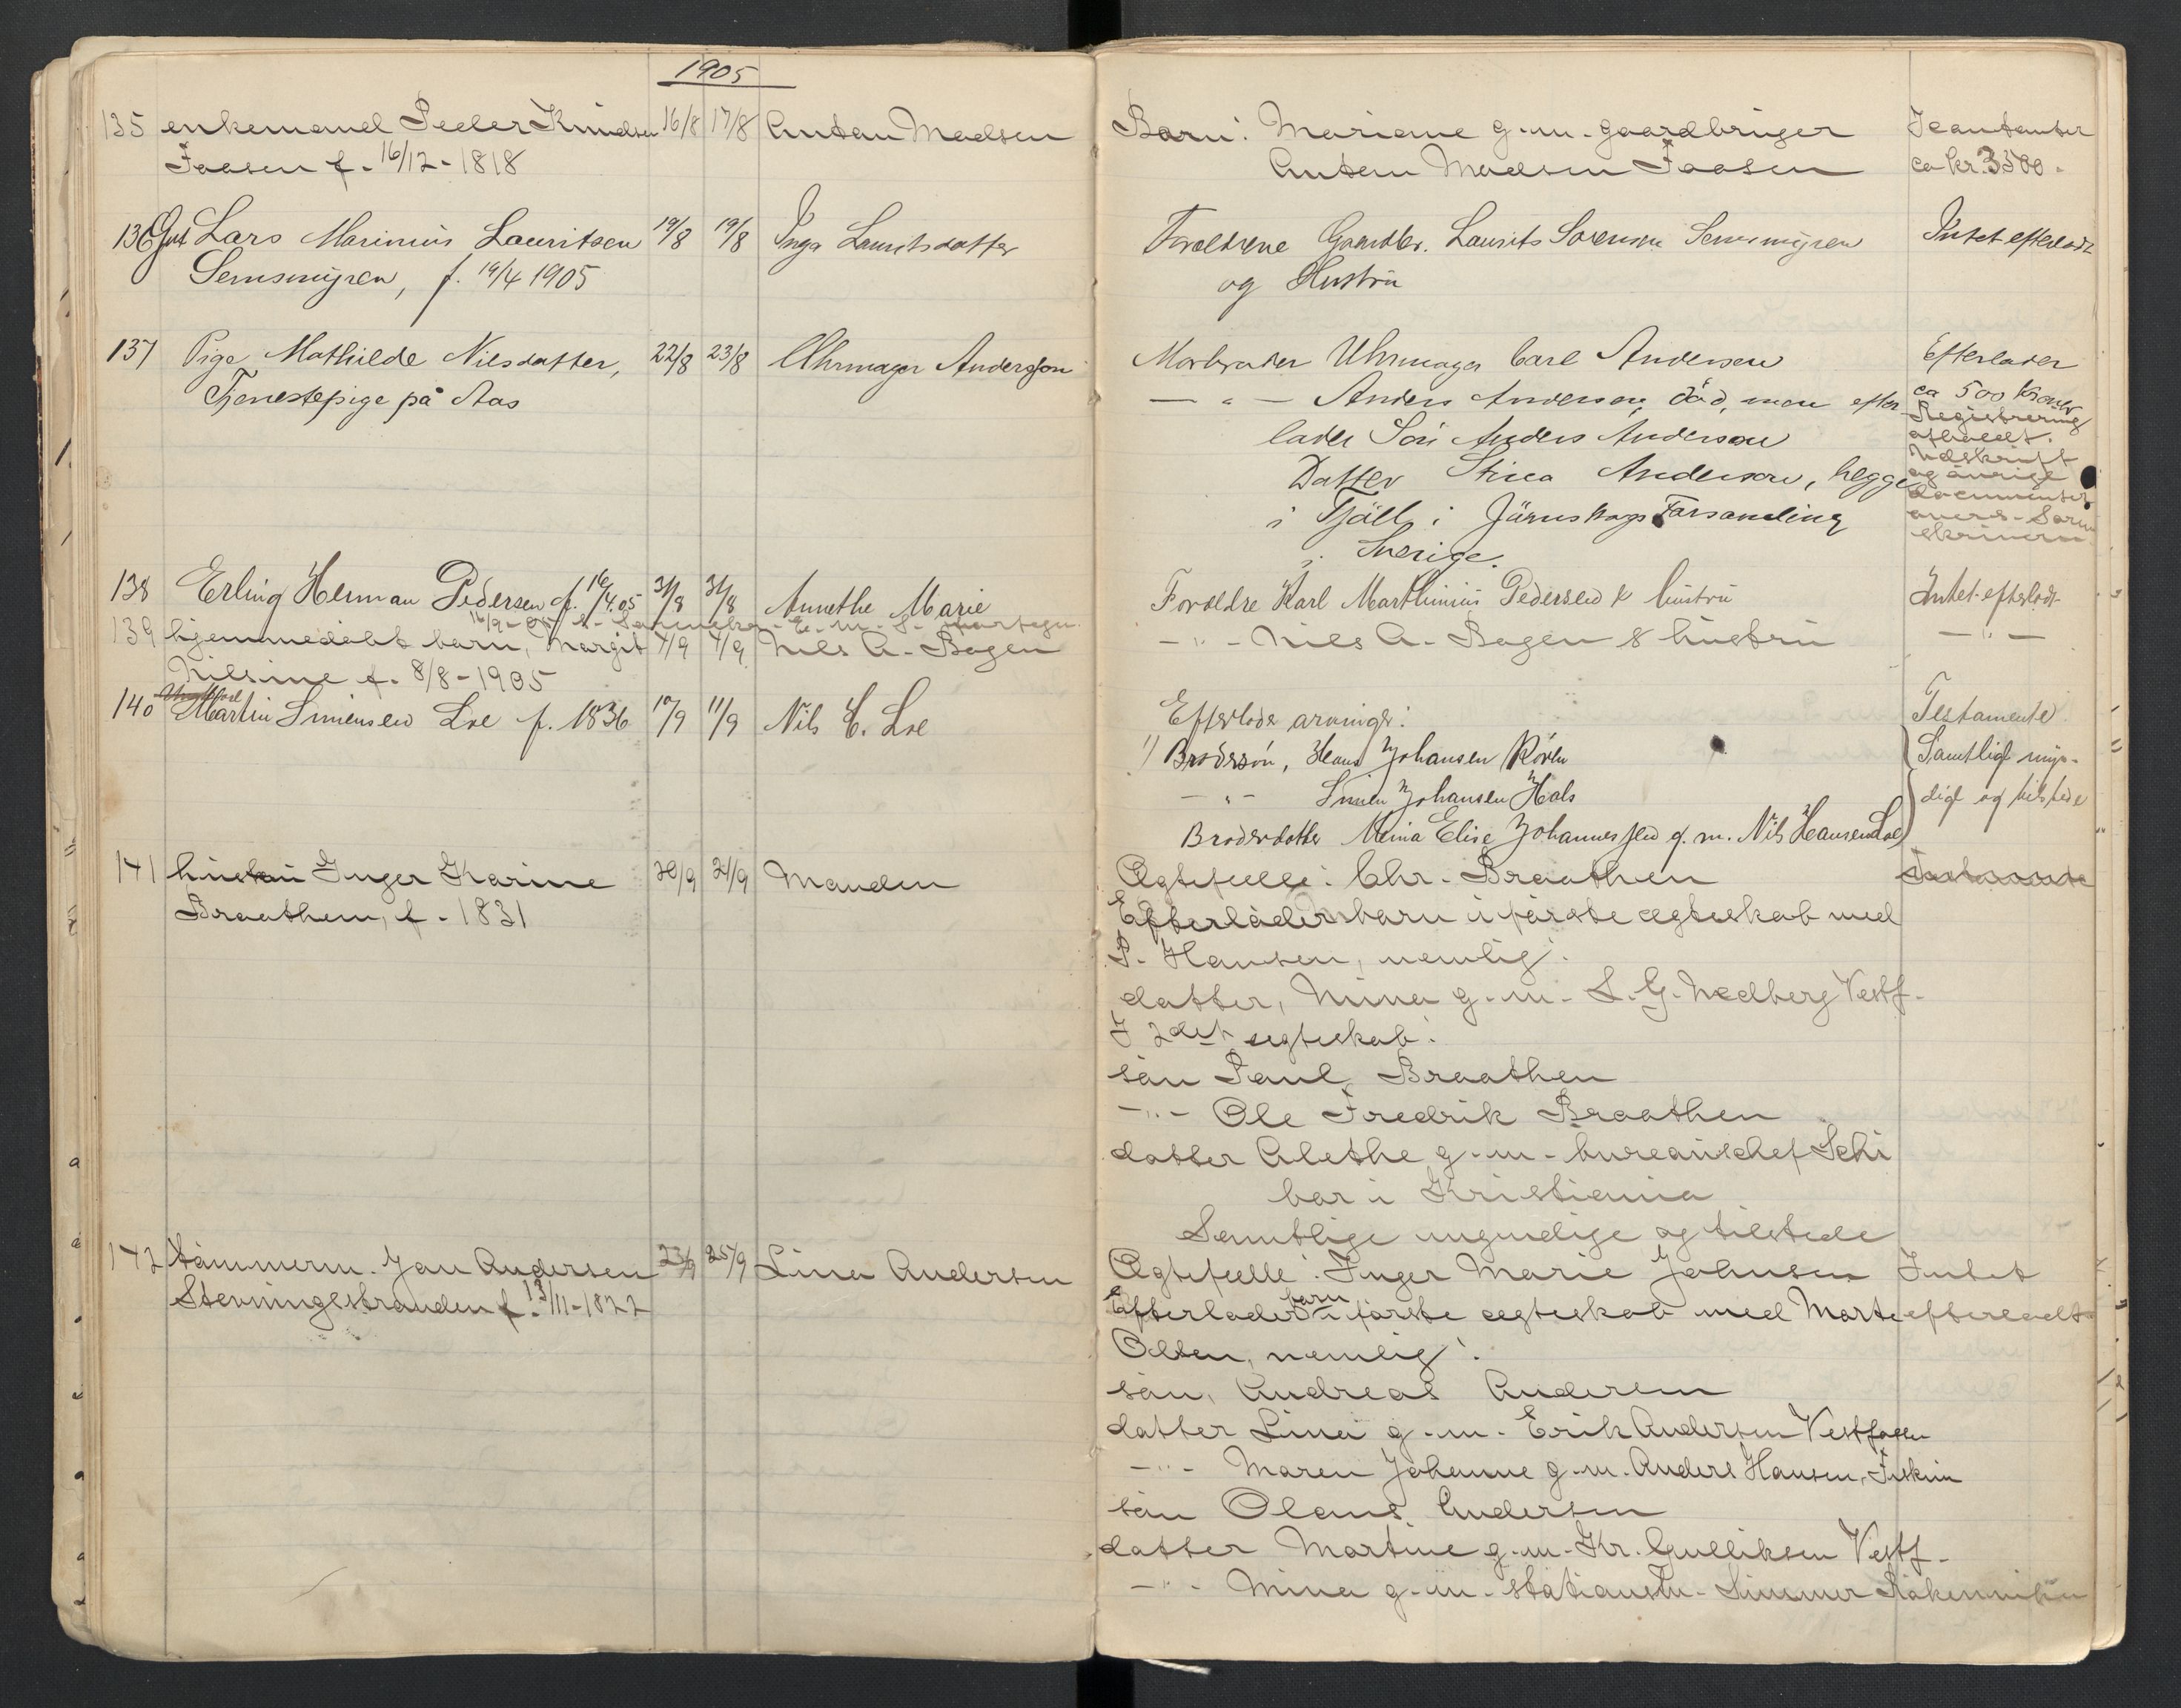 1905
135 enkemand Peder Knudsen 16/8 17/8 Anton Madsen
Faasen f. 16/12-1818
136 Gut Lars Marinius Lauritsen 19/8 19/8 Inga Lauritsdatter
Semsmyren, f. 19/4 1905
137 Pige Mathilde Nilsdatter, 22/8 23/8 Uhrmager Andersson
Tjenestepige på Aas
138 Erling Herman Pedersen f. 16/4.05 31/8 31/8 Annethe Marie
139 hjemmedøbt barn, Margit 7/9 7/9 Nils A. Bagen
Nilsine f. 8/8-1905
140 Martin Simensen Loe f. 1836 10/9 11/9 Nils C. Loe
141 hustru Inger Karine 20/9 21/9 Manden
Braathen, f. 1831
142 tømmerm. Jan Andersen 23/9 25/9 Lina Andersen
Stevningsstranden f. 13/11-1822
Barn: Mariane g.m. gaardbruger
Anton Madsen Faasen
ca kr. 3500.
Forældrene Gaardbr. Laurits Sørensen Semsmyren
og Hustru
Intet efterladt
Morbroder Uhrmager Carl Andersen
— " — Anders Andersen, død, men efter-
lader Søn Anders Anderson
Datter Stina Anderson, begge
i Fjäll i Järnskogs Forsamling
i Sverige.
Efterlader
ca 500 Kroner
Registrering
afholdt.
Udskrift
og øvrige
documenter
Forældre Karl Marthinius Pedersen & hustru
Intet efterladt
— " — Nils A. Bagen & hustru
— " —
Efterlader arvinger:
Testamente
1) Brodersøn, Hans Johansen Røren
— " — Simen Johansen Hals
Broderdatter Mina Elise Johannessen g. m. Nils Hansen Loe
Samtlige myn-
dige og tilstede
Ægtefælle: Chr. Braathen
Efterlader barn i første ægteskab med
P. Hansen, nemlig:
datter, Mina g.m. S. G. Nedberg Vestf.
I 2det ægteskab:
søn Paul Braathen
— " — Ole Fredrik Braathen
datter Alethe g.m. bureauchef Schi
bor i Kristiania
Samtlige myndige og tilstede
Ægtefælle: Inger Marie Johnsen
Intet
Efterlader barn i første ægteskab med Marte
efterladt.
Olsen, nemlig:
søn, Andreas Andersen
datter Lina g.m. Erik Andersen Vestfossen
— " — Maren Johanne g.m. Anders Hansen, Fiskum
søn Olaus Andersen
datter Martine g.m. Kr. Gulliksen Vestf.
— " — Mina g.m. stationsm. Simmer